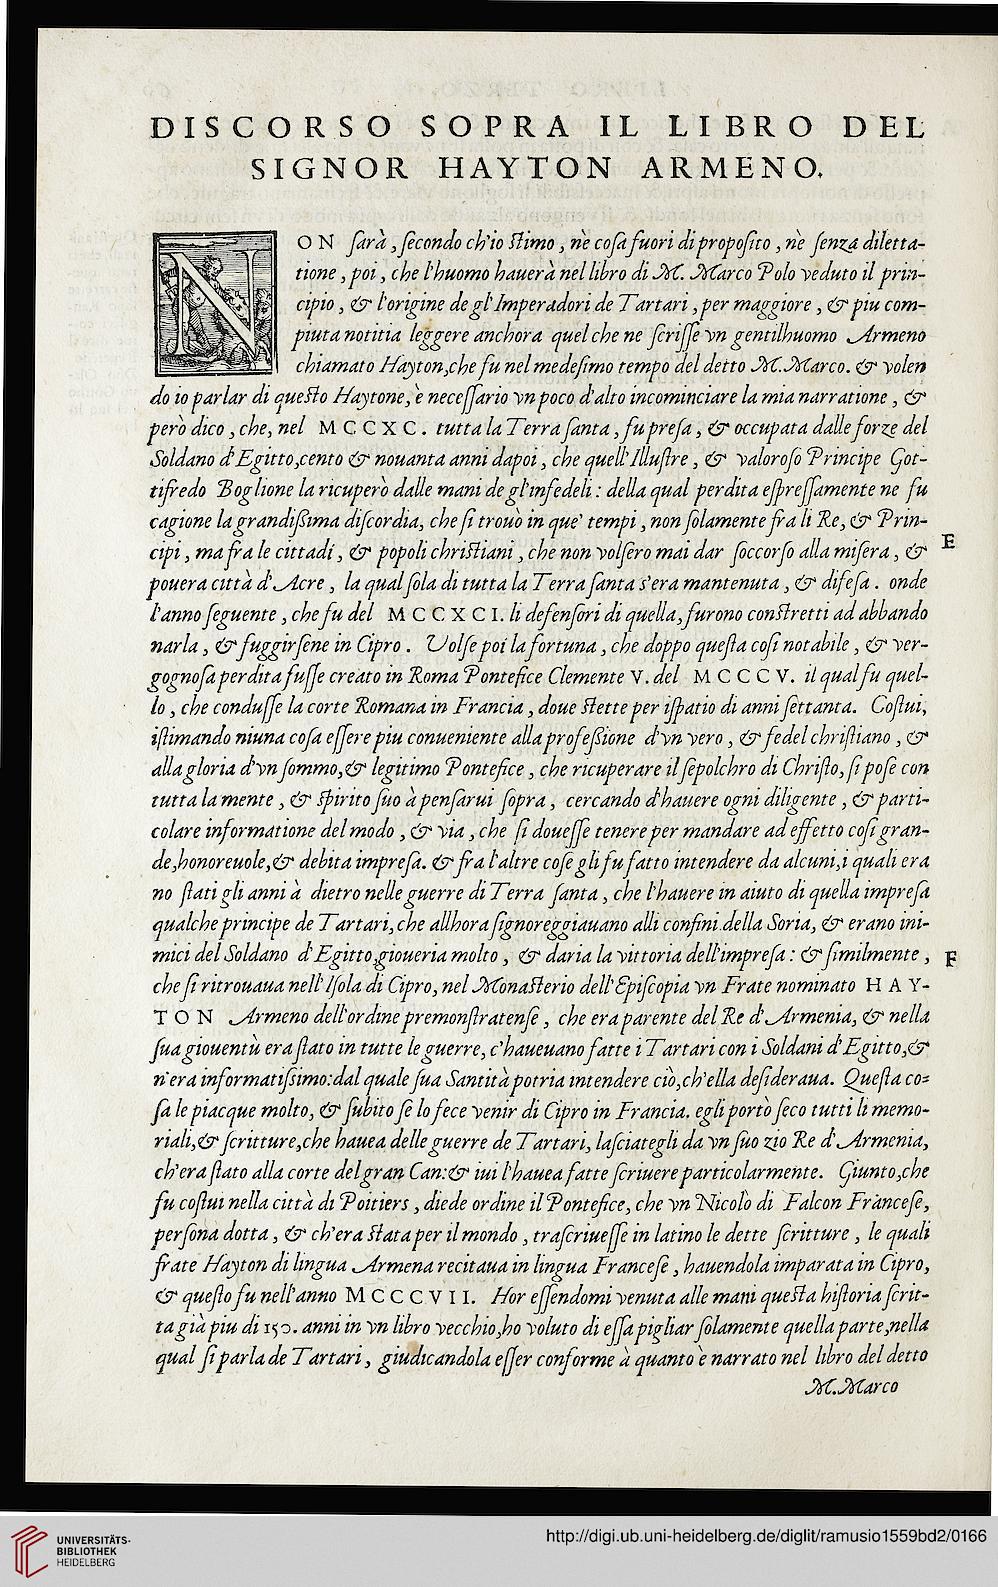 DISCORSO SOPRA IL LIBRO DEL
SIGNOR HAYTON ARMENO.
NON ſarà, ſecondo ch'io ſtimo, nè coſa fuori di propoſito, nè ſenza diletta-
tione, poi, che l'huomo hauerà nel libro di M. Marco Polo veduto il prin-
cipio, & l'origine de gl'Imperadori de Tartari, per maggiore, & piu com-
piuta notitia leggere anchora quel che ne ſcriſſe vn gentilhuomo Armeno
chiamato Hayton, che fu nel medeſimo tempo del detto M. Marco. & volen
do io parlar di queſto Haytone, è neceſſario vn poco d'alto incominciare la mia narratione, &
però dico, che, nel MCCXC. tutta la Terra ſanta, fu preſa, & occupata dalle forze del
Soldano d'Egitto, cento & nouanta anni dapoi, che quell'Illuſtre, & valoroſo Principe Got-
tifredo Boglione la ricuperò dalle mani de gl'infedeli: della qual perdita eſpreſſamente ne fu
cagione la grandißima diſcordia, che ſi trouò in que' tempi, non ſolamente fra li Re, & Prin-
cipi, ma fra le cittadi, & popoli chriſtiani, che non volſero mai dar ſoccorſo alla miſera, &
E
pouera città d'Acre, la qual ſola di tutta la Terra ſanta s'era mantenuta, & difeſa. onde
l'anno ſeguente, che fu del MCCXCI. li defenſori di quella, furono conſtretti ad abbando
narla, & fuggirſene in Cipro. Volſe poi la fortuna, che doppo queſta coſi notabile, & ver-
gognoſa perdita fuſſe creato in Roma Pontefice Clemente V. del MCCCV. il qual fu quel-
lo, che conduſſe la corte Romana in Francia, doue ſtette per iſpatio di anni ſettanta. Coſtui,
iſtimando niuna coſa eſſere piu conueniente alla profeßione d'vn vero, & fedel chriſtiano, &
alla gloria d'vn ſommo, & legitimo Pontefice, che ricuperare il ſepolchro di Chriſto, ſi poſe con
tutta la mente, & ſpirito ſuo à penſarui ſopra, cercando d'hauere ogni diligente, & parti-
colare informatione del modo, & via, che ſi doueſſe tenere per mandare ad effetto coſi gran-
de, honoreuole, & debita impreſa. & fra l'altre coſe gli fu fatto intendere da alcuni, i quali era
no ſtati gli anni à dietro nelle guerre di Terra ſanta, che l'hauere in aiuto di quella impreſa
qualche principe de Tartari, che allhora ſignoreggiauano alli confini della Soria, & erano ini-
mici del Soldano d'Egitto, gioueria molto, & daria la vittoria dell'impreſa: & ſimilmente,
F
che ſi ritrouaua nell'Iſola di Cipro, nel Monaſterio dell'Epiſcopia vn Frate nominato HAY-
TON Armeno dell'ordine premonſtratenſe, che era parente del Re d'Armenia, & nella
ſua giouentù era ſtato in tutte le guerre, c'haueuano fatte i Tartari con i Soldani d'Egitto, &
n'era informatiſsimo: dal quale ſua Santità potria intendere ciò, ch'ella deſideraua. Queſta co=
ſa le piacque molto, & ſubito ſe lo fece venir di Cipro in Francia. egli portò ſeco tutti li memo-
riali, & ſcritture, che hauea delle guerre de Tartari, laſciategli da vn ſuo zio Re d'Armenia,
ch'era ſtato alla corte del gran Can: & iui l'hauea fatte ſcriuere particolarmente. Giunto, che
fu coſtui nella città di Poitiers, diede ordine il Pontefice, che vn Nicolò di Falcon Franceſe,
perſona dotta, & ch'era ſtata per il mondo, traſcriueſſe in latino le dette ſcritture, le quali
frate Hayton di lingua Armena recitaua in lingua Franceſe, hauendola imparata in Cipro,
& queſto fu nell'anno MCCCVII. Hor eſſendomi venuta alle mani queſta hiſtoria ſcrit-
ta già piu di 150. anni in vn libro vecchio, ho voluto di eſſa pigliar ſolamente quella parte, nella
qual ſi parla de Tartari, giudicandola eſſer conforme à quanto è narrato nel libro del detto
M. Marco
UNIVERSITÄTS-
BIBLIOTHEK
HEIDELBERG
http://digi.ub.uni-heidelberg.de/diglit/ramusio1559bd2/0166